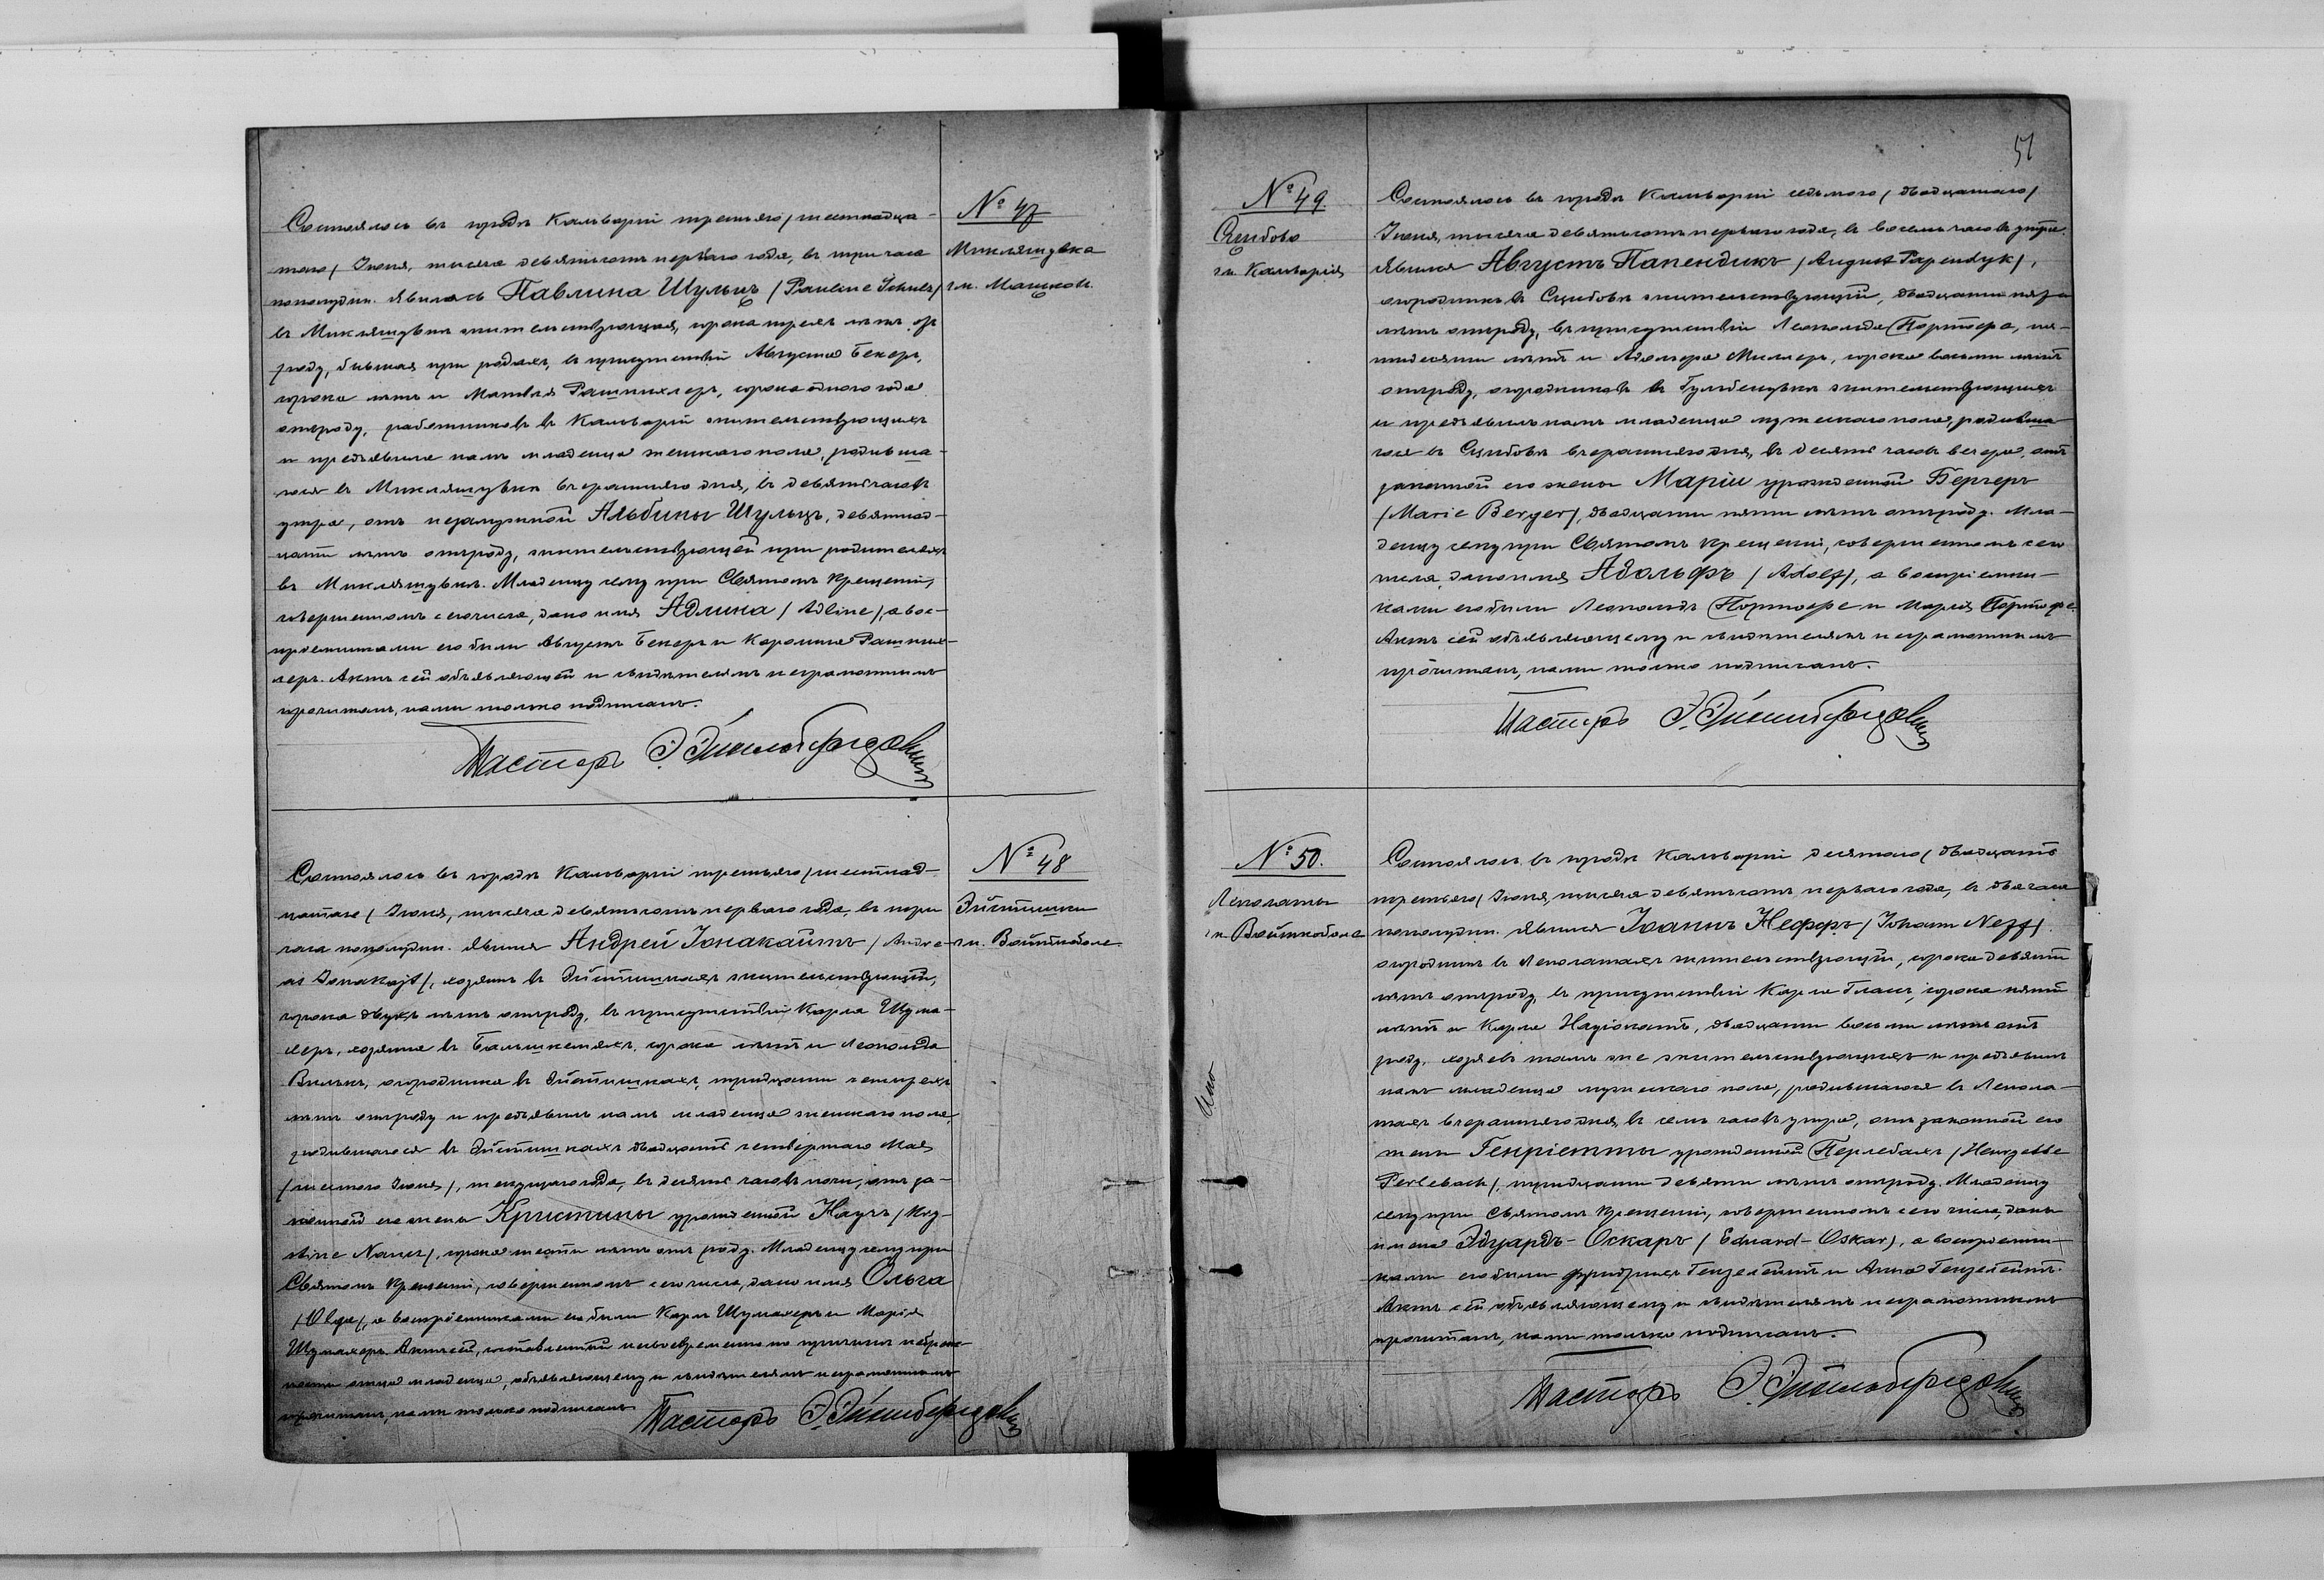 Состоялось въ городѣ Кальваріи третьяго /шестнадца-
таго/ Іюня, тысяча девятьсотъ перваго года, въ три часа
пополудни. Явилась Павлина Шульцъ /Pauline Schulz/
въ Микляшувкѣ жительствующая, сорока трехъ лѣтъ отъ
роду, бывшая при родахъ, въ присутствіи Августа Бекеръ,
сорока лѣтъ и Матвѣя , сорока одного года
отъ роду, работниковъ въ Кальваріи жительствующихъ
и предъявила намъ младенца женскаго пола, родивша-
гося въ Микляшувкѣ вчерашняго дня, въ девять часовъ
утра, отъ незамужной Альбины Шульцъ, девятнад-
цати лѣтъ отъ роду, жительствующей при родителяхъ
въ Микляшувкѣ. Младенцу сему при Святомъ Крещеніи,
совершенномъ сего числа, дано имя Адлина /Adline/, а вос-
пріемниками его были Августъ Бекеръ и Каролина
Актъ сей объявляющей и свидѣтелямъ неграмотнымъ
прочитанъ, нами только подписанъ.
Пасторъ
№ 47
Микляшувка
гм.
Состоялось въ городѣ Кальваріи третьяго /шестнад-
цатаго/ Іюня, тысяча девятьсотъ перваго года, въ три
часа пополудни. Явился Андрей Іонакайтъ /Andre-
as Jonakajt/, хозяинъ въ жительствующій,
сорока двухъ лѣтъ отъ роду, въ присутствіи Карла Шума-
херъ, хозяина въ сорока лѣтъ и Леопольда
огородника въ тридцати четырехъ
лѣтъ отъ роду и предъявилъ намъ младенца женскаго пола,
родившагося въ двадцать четвертаго Мая
/шестого Іюня/, текущаго года, въ десять часовъ ночи, отъ за-
конной его жены Кристины урожденной Науъ /Kry-
stine сорока шести лѣтъ отъ роду. Младенцу сему при
Святомъ Крещеніи, совершенномъ сего числа, дано имя Ольга
/Olga/, а воспріемниками его были Карлъ Шумахеръ и Марія
Шумахеръ. Актъ сей, составленный несвоевременно по причинѣ небреж-
ности отца младенца, объявляющему и свидѣтелямъ неграмотнымъ
прочитанъ, нами только подписанъ
Пасторъ
№ 48
гм. Войткоболе.
51
№ 49
гм. Кальварія
Состоялось въ городѣ Кальваріи седьмого /двадцатаго/
Іюня, тысяча девятьсотъ перваго года, въ восемь часовъ утра.
Явился Августъ Папендикъ /August Papendyk/,
огородникъ въ жительствующій, двадцати пяти
лѣтъ отъ роду, въ присутствіи Леопольда пя-
тидесяти лѣтъ и Адольфа Миллеръ, сорока восьми лѣтъ
отъ роду, огородниковъ въ жительствующихъ
и предъявилъ намъ младенца мужескаго пола, родивша-
гося въ вчерашняго дня, въ десять часовъ вечера, отъ
законной его жены Маріи урожденной Бергеръ
/Marie Berger/, двадцати пяти лѣтъ отъ роду. Мла-
денцу сему при Святомъ Крещеніи, совершенномъ сего
числа, дано имя Адольфъ /Adolf/, а воспріемни-
ками его были Леопольдъ и Марія
Актъ сей объявляющему и свидѣтелямъ неграмотнымъ
прочитанъ, нами только подписанъ.
Пасторъ
№ 50.
гм. Войткоболе
Состоялось въ городѣ Кальваріи десятаго /двадцать
третьяго/ Іюня, тысяча девятьсотъ перваго года, въ два часа
пополудни. Явился Іоаннъ Неффъ /Johann Neff/.
огородникъ въ жительствующій, сорока девяти
лѣтъ отъ роду, въ присутствіи Карла сорока пяти
лѣтъ и Карла двадцати восьми лѣтъ отъ
роду, хозяевъ тамъ же жительствующихъ и предъявилъ
намъ младенца мужескаго пола, родившагося въ
вчерашняго дня, въ семь часовъ утра, отъ законной его
жены Генріетты урожденной Перлебахъ /Henryette
Perlebach/, тридцати девяти лѣтъ отъ роду. Младенцу
сему при Святомъ Крещеніи, совершенномъ сего числа, даны
имена Эдуардъ-Оскаръ /Eduard-Oskar/, а воспріемни-
ками его были Фридрихъ и Анна
Актъ сей объявляющему и свидѣтелямъ неграмотнымъ
прочитанъ, нами только подписанъ.
Пасторъ